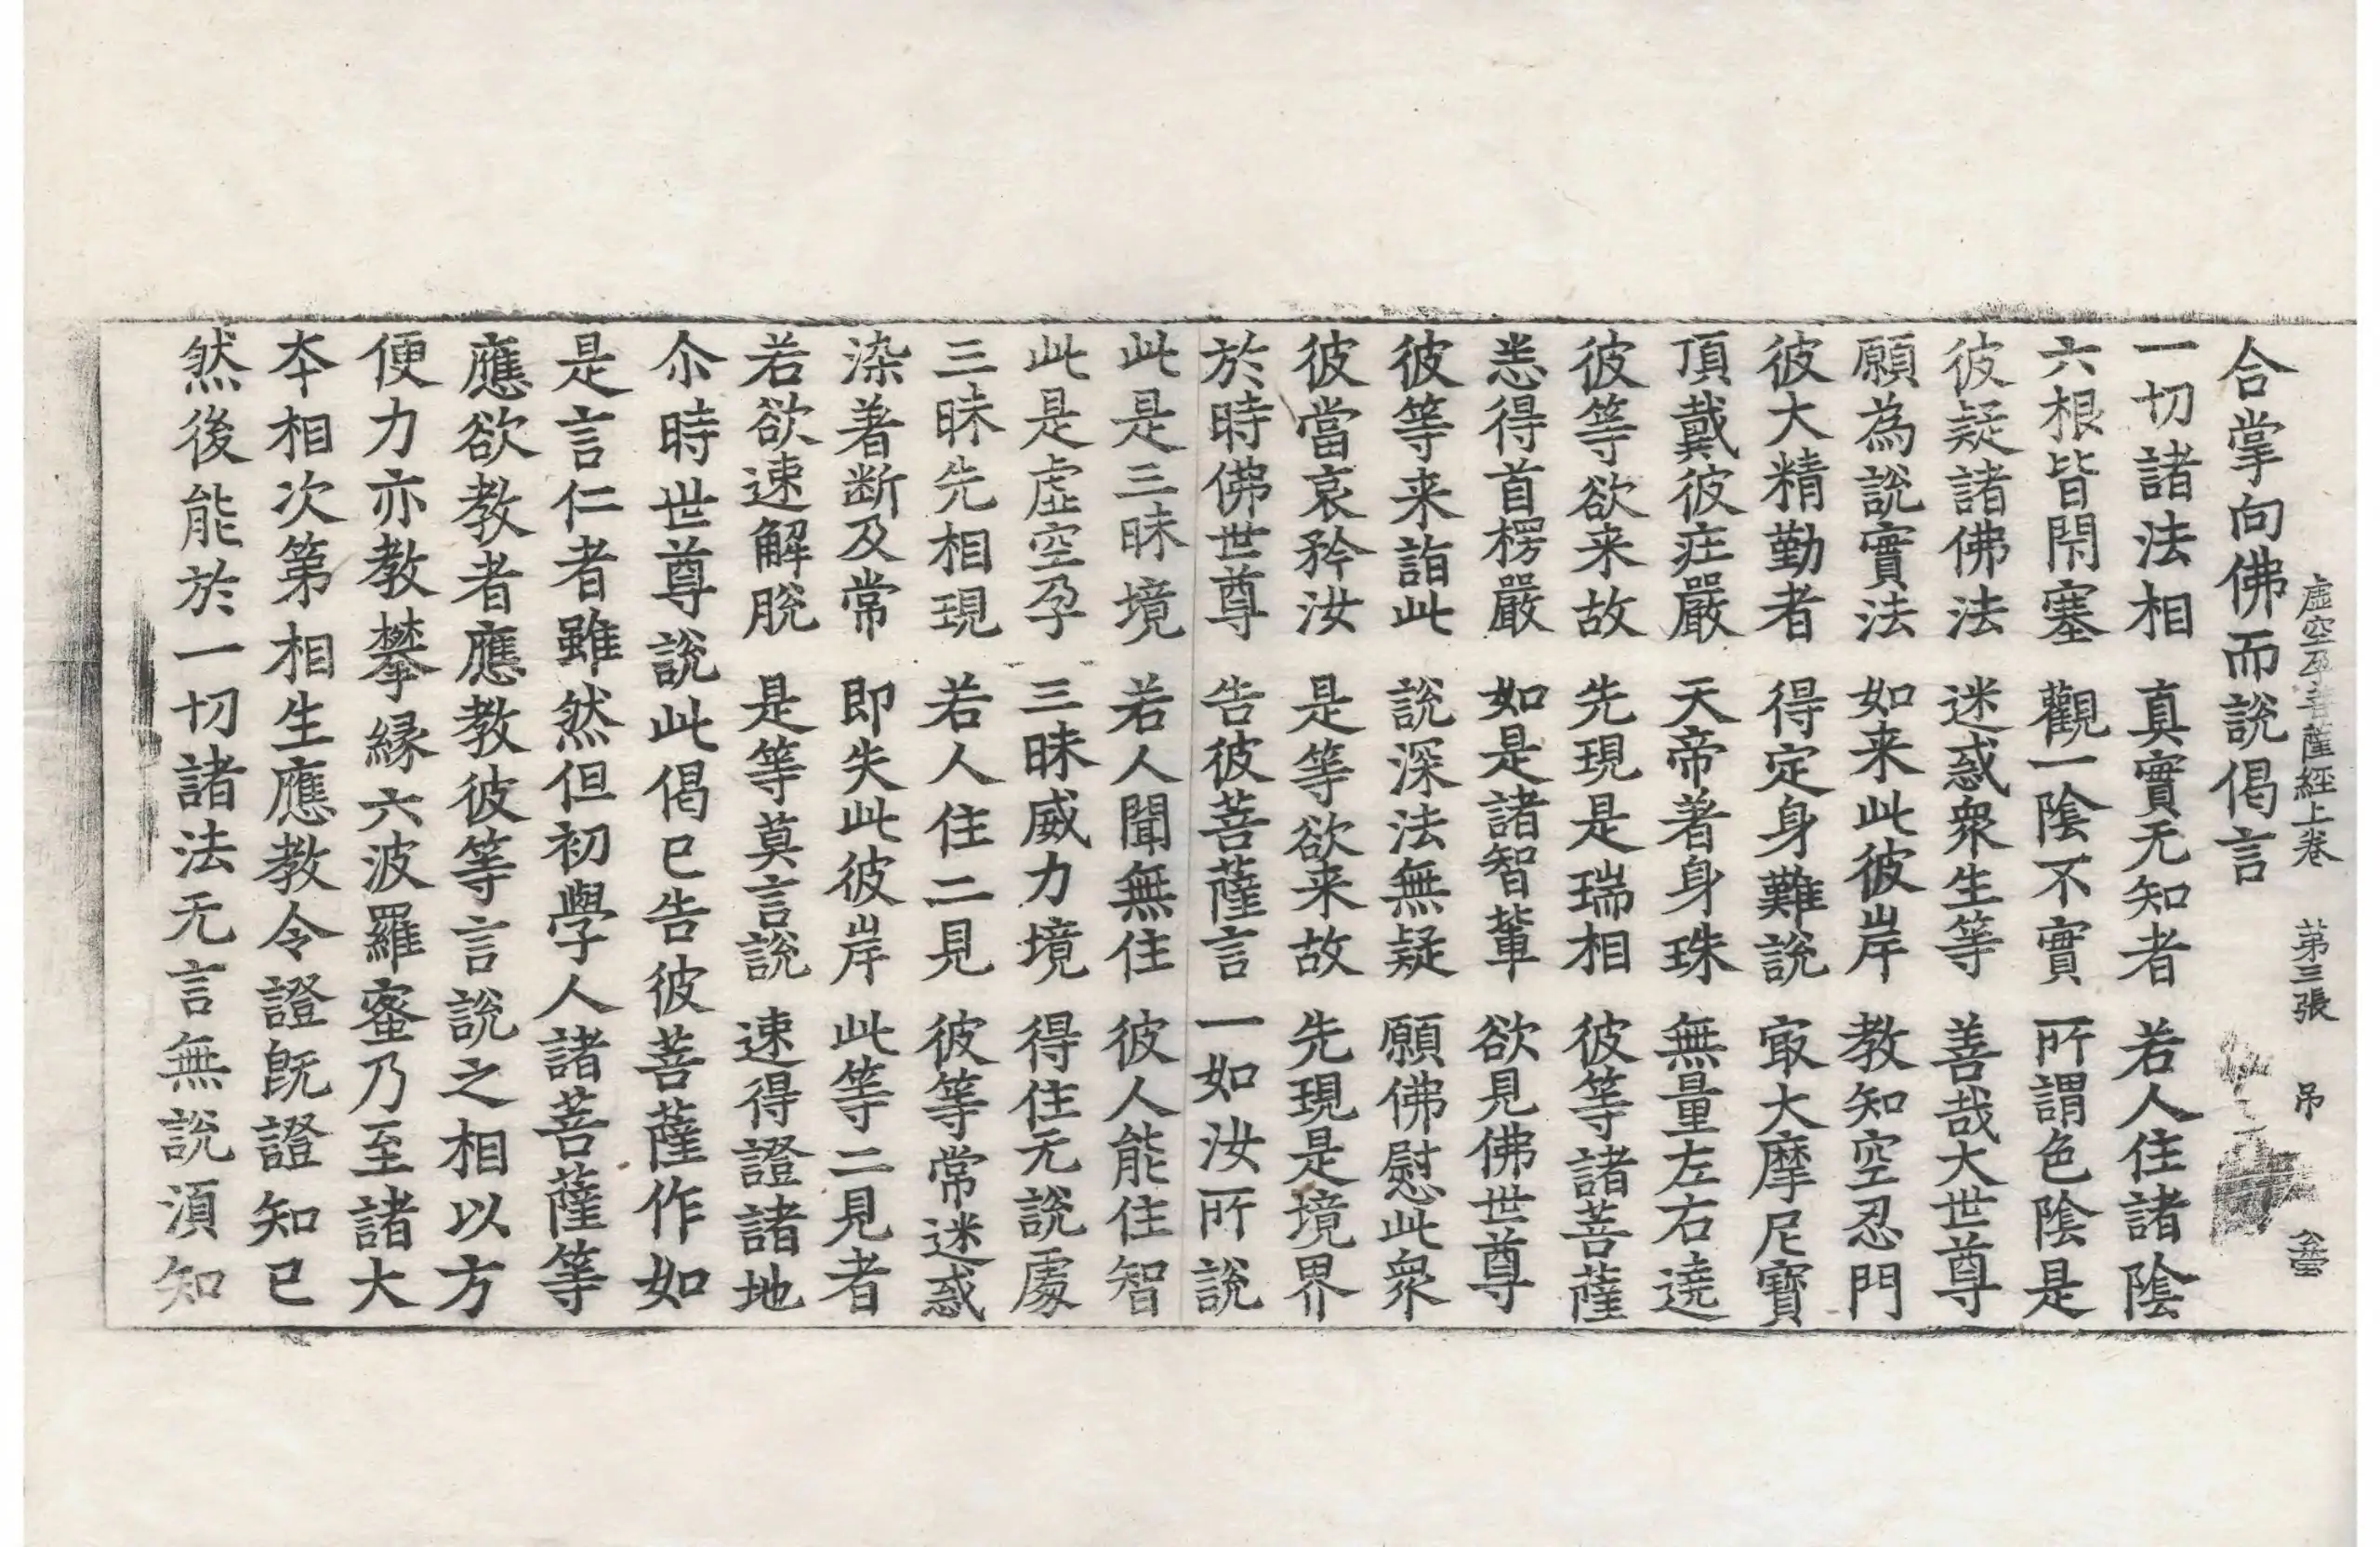 虛空孕菩薩經上卷　第三張　吊
合掌向佛而說偈言
一切諸法相　真實无知者　若人住諸陰
六根皆閇塞　觀一陰不實　所謂色陰是
彼疑諸佛法　迷惑衆生等　善哉大世尊
願為說實法　如来此彼岸　教知空忍門
彼大精勤者　得定身難說　㝡大摩尼寶
頂戴彼疘嚴　天帝著身珠　無量左右遶
彼等欲来故　先現是瑞相　彼等諸菩薩
恙得首楞嚴　如是諸智軰　欲見佛世尊
彼等来詣此　說深法無疑　願佛慰此衆
彼當哀矜汝　是等欲来故　先現是境界
於時佛世尊　告彼菩薩言　一如汝所說
此是三昧境　若人聞無住　彼人能住智
此是虛空孕　三昧威力境　得住无說處
三昧先相現　若人住二見　彼等常迷惑
染著断及常　即失此彼岸　此等二見者
若欲速解脫　是等莫言說　速得證諸地
尒時世尊說此偈已告彼菩薩作如
是言仁者雖然但初學人諸菩薩等
應欲教者應教彼等言說之相以方
便力亦教攀縁六波羅蜜乃至諸大
夲相次第相生應教令證旣證知已
然後能於一切諸法无言無說湏知